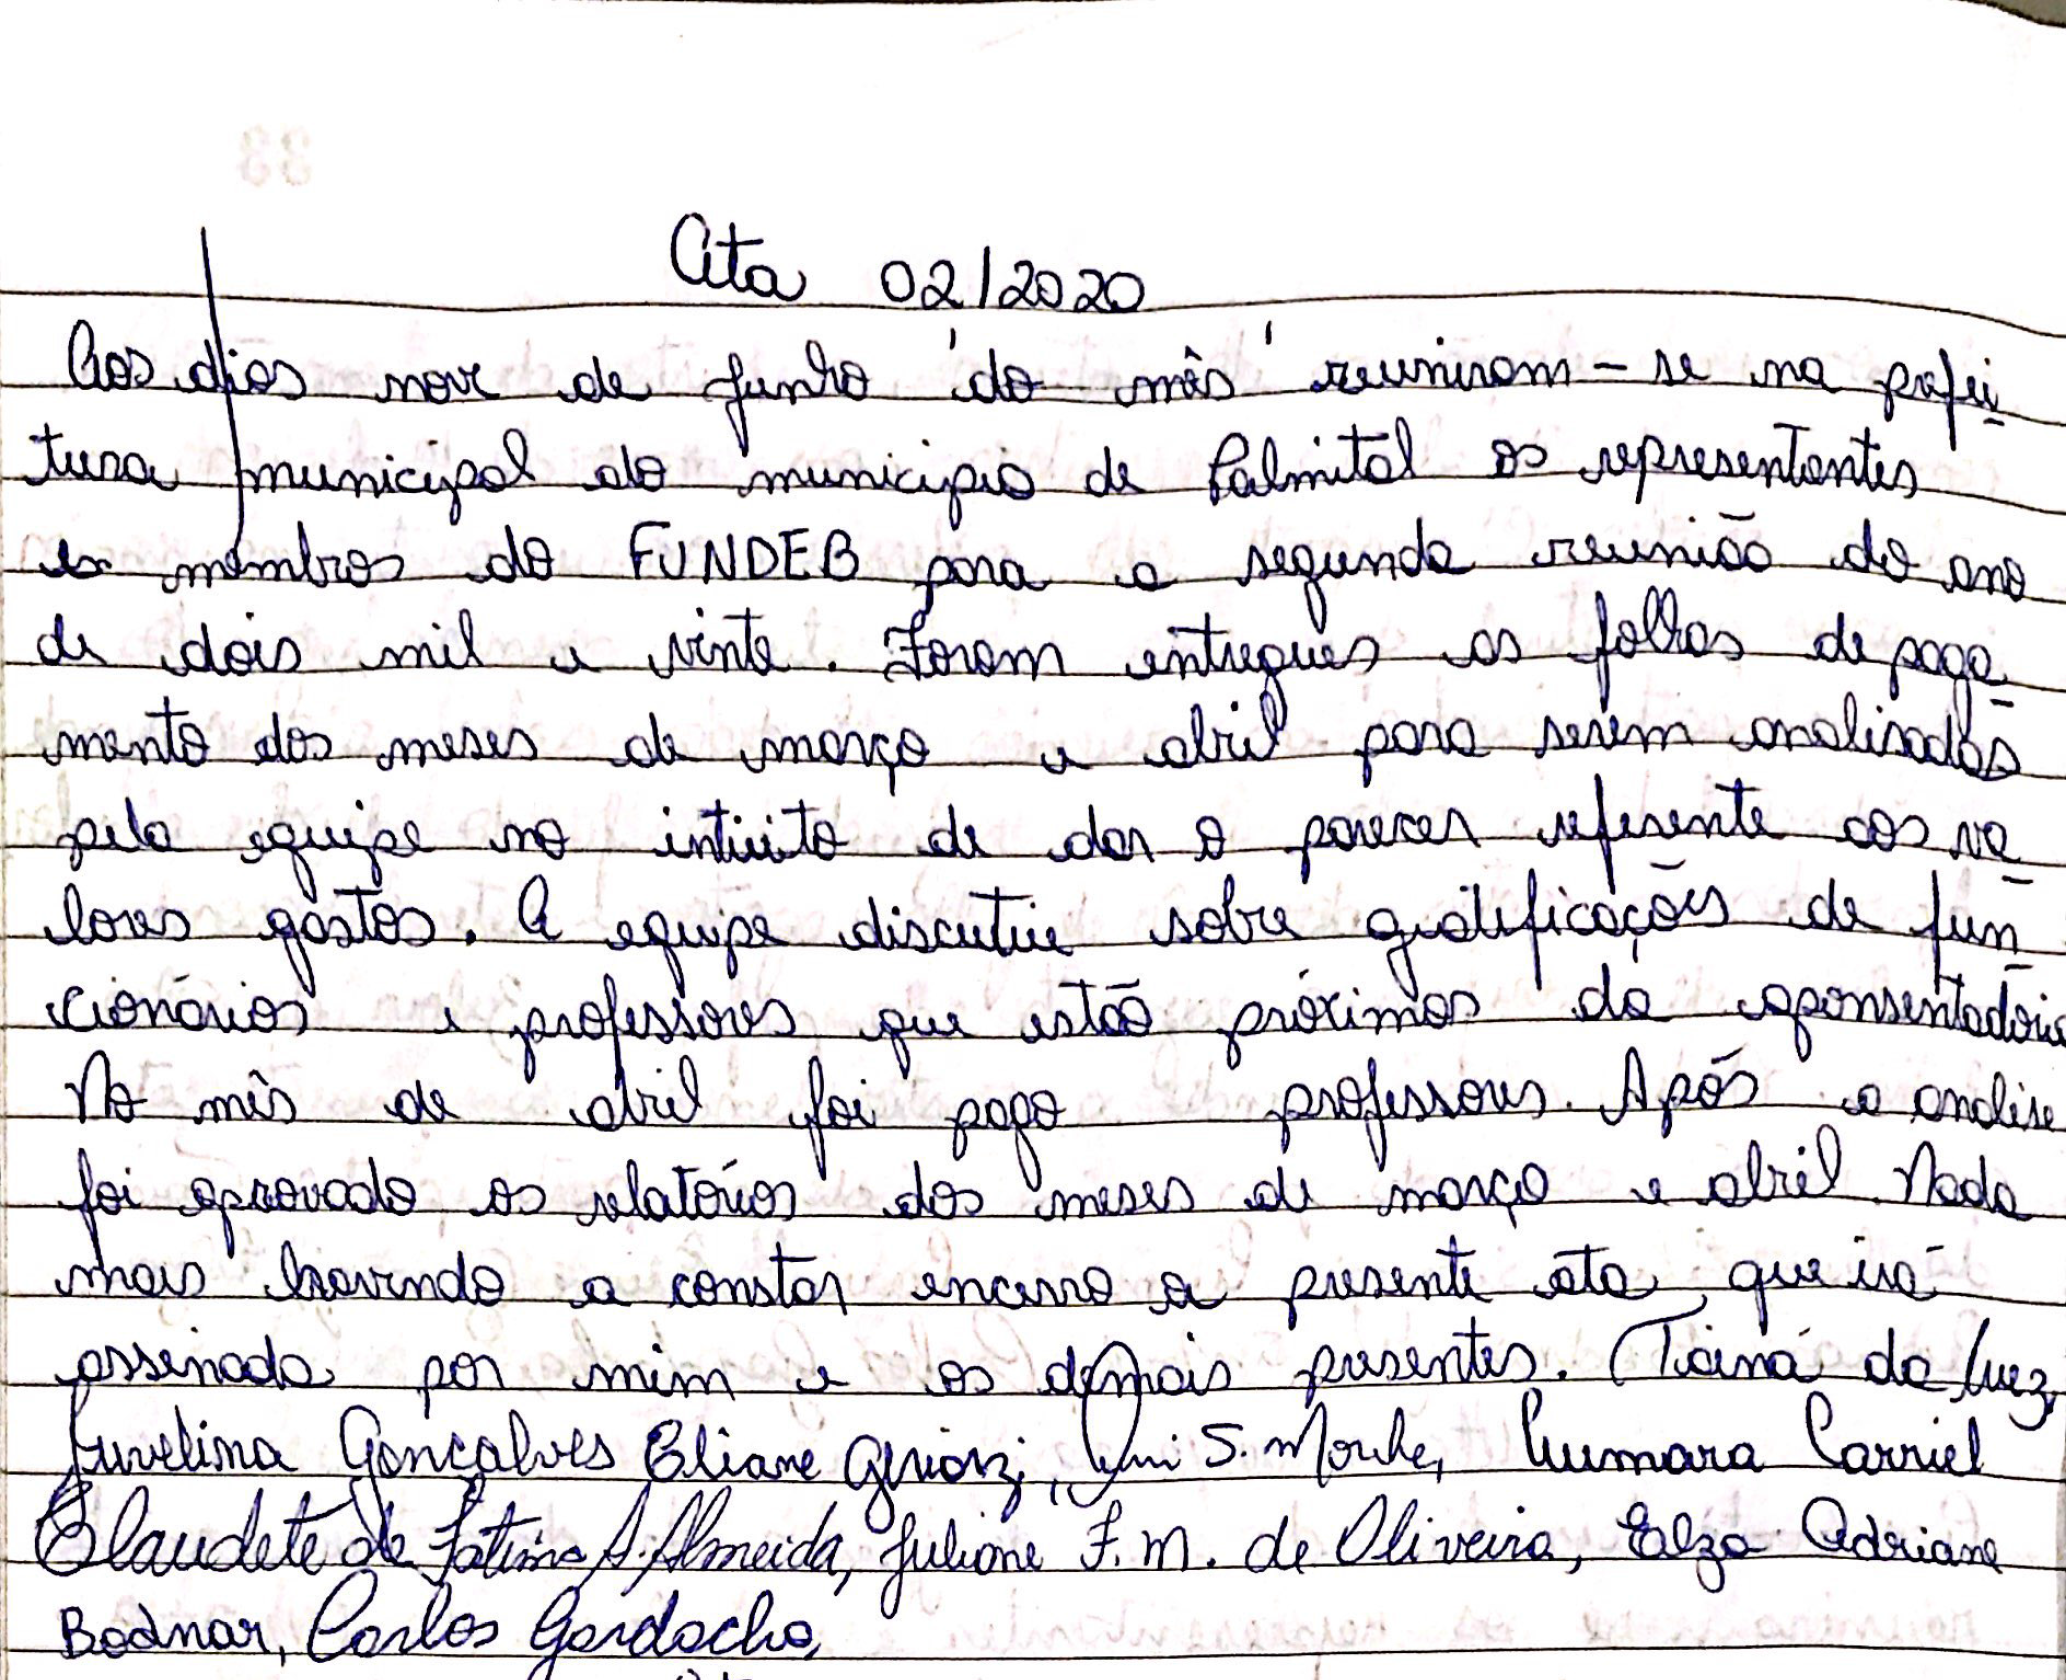 Ata 02/2020
Aos dias nove de junho 'do mês' reuniram-se na prefei
tura municipal do municipio de Palmital os representantes
es membros do FUNDEB para a segunda reunião do ano
de dois mil e vinte. Foram entregues as folhas de paga
mento dos meses de março e abril para serem analisadas
pela equipe no intuito de dar o parecer referente aos va
lores gastos. A equipe discutiu sobre gratificações de fun
cionários e professores que estão próximos da aponsentadoria
No mês de abril foi pago professores. Após a analise
foi aprovado os relatórios dos meses de março e abril. Nada
mais havendo a constar encerro a presente ata, que irá
assinada por mim e os demais presentes. Tainá da Luz,
Juvelina Gonçalves Eliane S. Lumara Carriel
Claudete de Fátima A. Almeida, Juliane F. M. de Oliveira, Elza Adriane
Bodnar, Carlos Gardacho